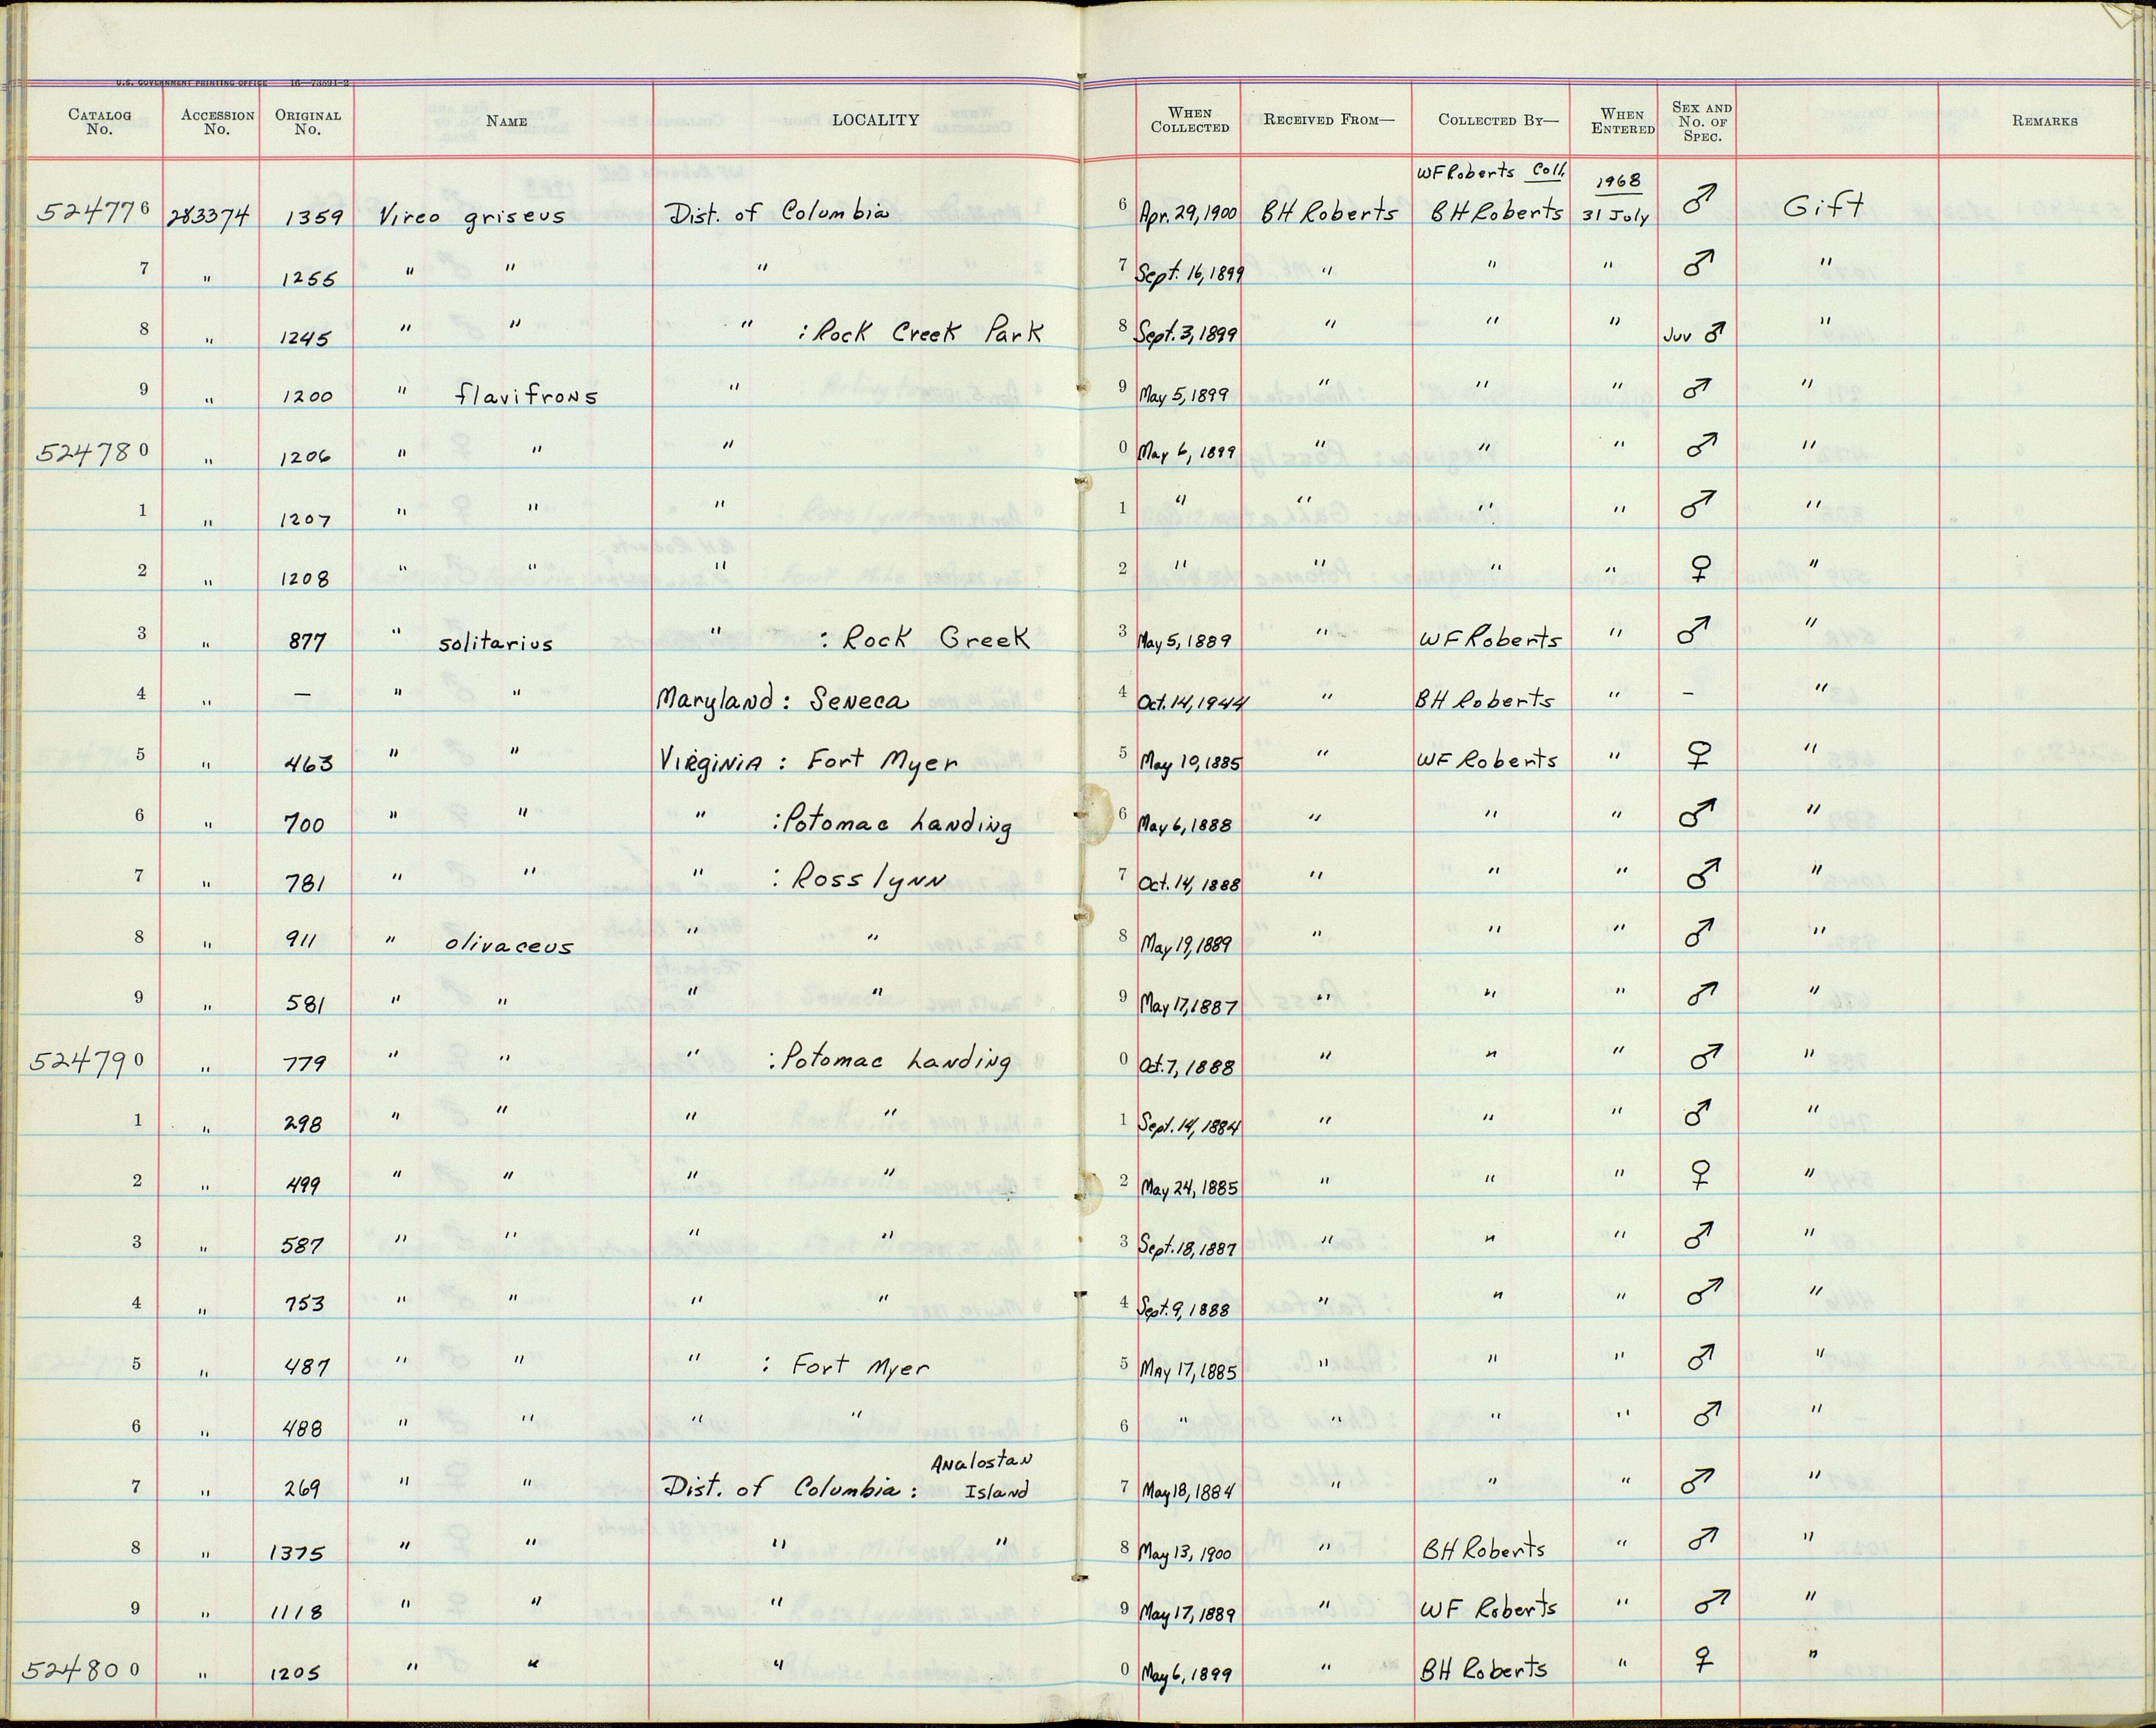 U.S. GOVERNMENT PRINTING OFFICE 16—73591-2
CATALOG No. ACCESSION No. ORIGINAL No. NAME LOCALITY WHEN COLLECTED RECEIVED FROM— COLLECTED BY— WHEN ENTERED SEX AND No. OF SPEC. REMARKS
WF Roberts Coll. 1968
524776 283374 1359 Vireo griseus Dist. of Columbia 6 Apr. 29, 1900 BH Roberts BH Roberts 31 July ♂ Gift
7 " 1255 " " " 7 Sept. 16, 1899 " " " ♂ "
8 " 1245 " " " : Rock Creek Park 8 Sept. 3, 1899 " " " Juv ♂ "
9 " 1200 " flavifrons " 9 May 5, 1899 " " " ♂ "
524780 " 1206 " " " 0 May 6, 1899 " " " ♂ "
1 " 1207 " " " 1 " " " " ♂ "
2 " 1208 " " " 2 " " " " ♀ "
3 " 877 " solitarius " : Rock Creek 3 May 5, 1889 " WF Roberts " ♂ "
4 " — " " Maryland : Seneca 4 Oct. 14, 1944 " BH Roberts " – "
5 " 463 " " Virginia : Fort Myer 5 May 10, 1885 " WF Roberts " ♀ "
6 " 700 " " " : Potomac Landing 6 May 6, 1888 " " " ♂ "
7 " 781 " " " : Rosslynn 7 Oct. 14, 1888 " " " ♂ "
8 " 911 " olivaceus " " 8 May 19, 1889 " " " ♂ "
9 " 581 " " " " 9 May 17, 1887 " " " ♂ "
524790 " 779 " " " : Potomac Landing 0 Oct. 7, 1888 " " " ♂ "
1 " 298 " " " " 1 Sept. 14, 1884 " " " ♂ "
2 " 499 " " " " 2 May 24, 1885 " " " ♀ "
3 " 587 " " " " 3 Sept. 18, 1887 " " " ♂ "
4 " 753 " " " " 4 Sept. 9, 1888 " " " ♂ "
5 " 487 " " " : Fort Myer 5 May 17, 1885 " " " ♂ "
6 " 488 " " " " 6 " " " " ♂ "
Analostan
7 " 269 " " Dist. of Columbia : Island 7 May 18, 1884 " " " ♂ "
8 " 1375 " " " " 8 May 13, 1900 " BH Roberts " ♂ "
9 " 1118 " " " 9 May 17, 1889 " WF Roberts " ♂ "
524800 " 1205 " " " 0 May 6, 1899 " BH Roberts " ♀ "